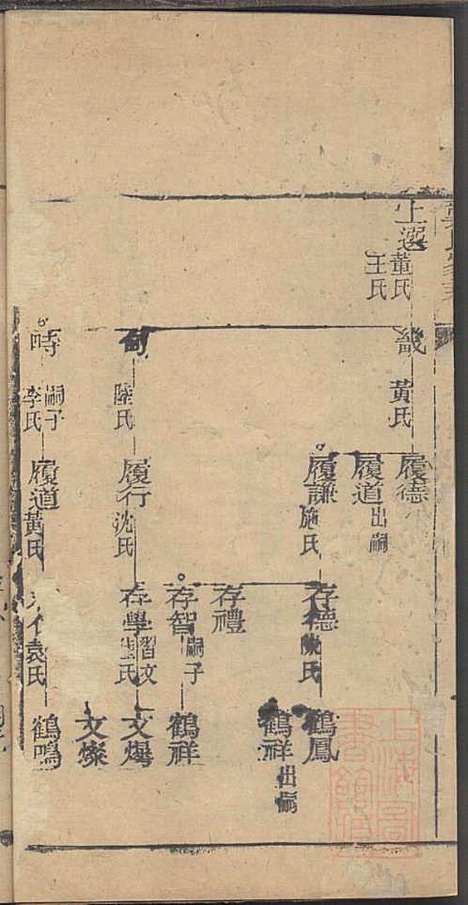 士選
董氏
王氏
畿
黃氏
甸
陸氏
時
嗣子
李氏
履德
履道
出嗣
履謙
施氏
履行
沈氏
履道
黃氏
存德
氏
存禮
存智
嗣子
存學
習文
氏
袁氏
鶴鳳
鶴祥
出嗣
鶴祥
文燦
鶴鳴